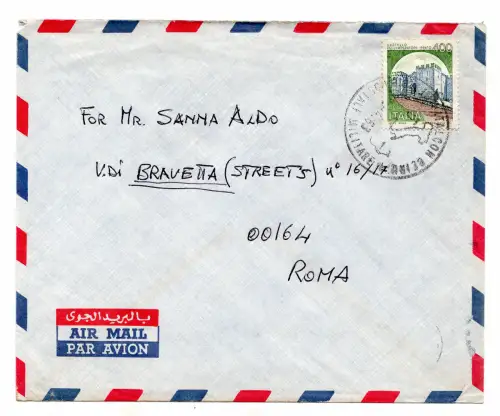 400
ITALIA
FOR MR. SANNA ALDO
V.DI BRAVETTA (STREETS) n° 16/17
00164
ROMA
بالبريد الجوى
AIR MAIL
PAR AVION